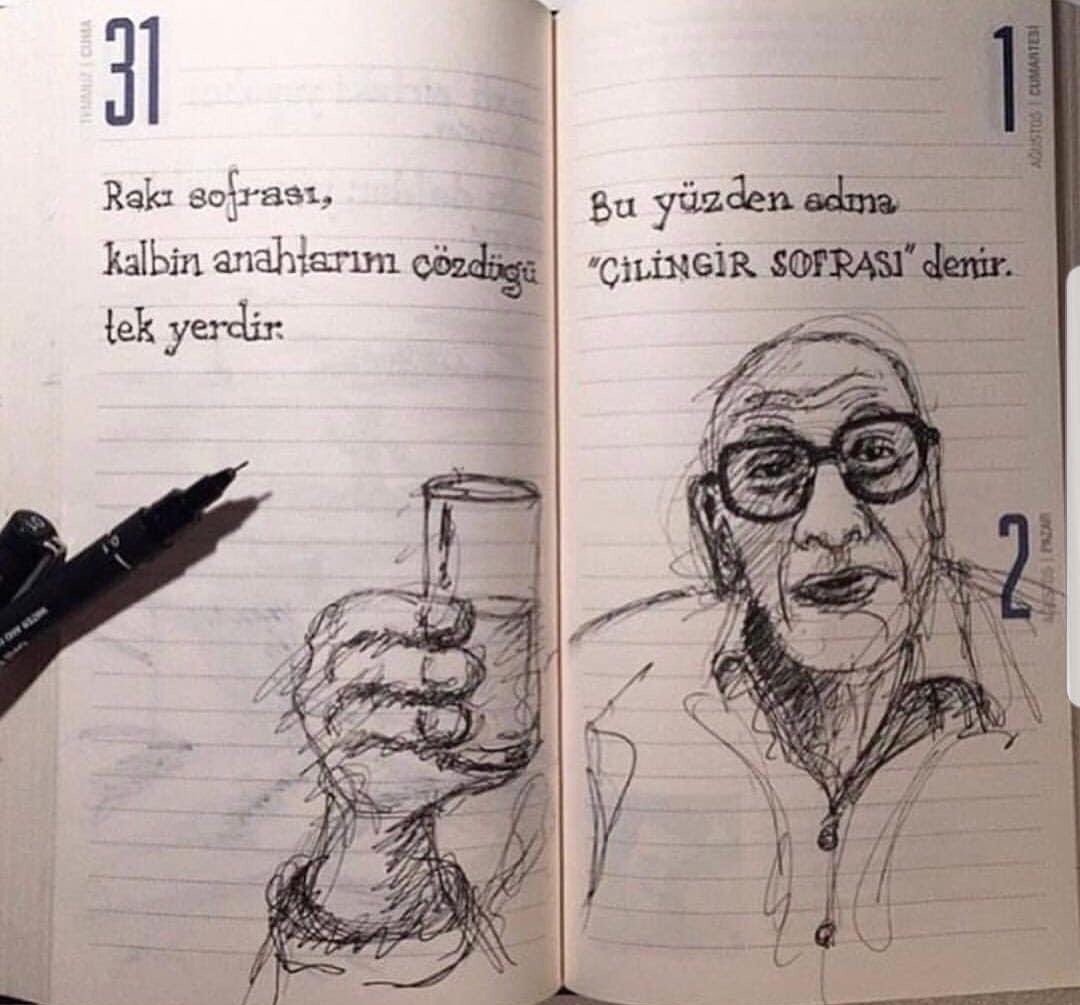 TEMMUZ | CUMA
31
Rakı sofrası,
kalbin anahtarını çözdügü
tek yerdir.
1
AĞUSTOS | CUMARTESİ
Bu yüzden adına
"ÇİLİNGİR SOFRASI" denir.
2
PAZAR